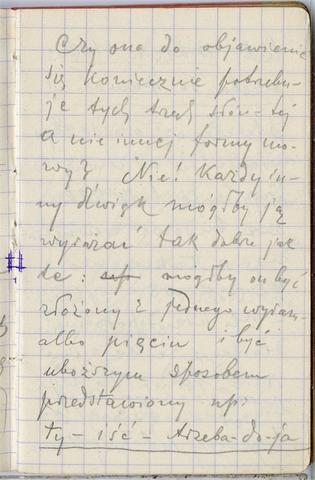 Czy one do objawienia
się koniecznie potrzebu-
je tych trzech słów - tej
a nie innej formy mo-
wy? Nie! Każdy in-
ny dźwięk mógłby ją
wyrazać tak dobrze jak
te: mógłby on być
złożony z jednego wyrazu
albo pięciu i być
uboższym sposobem
przedstawiony np:
ty - iść - trzeba - do - ja